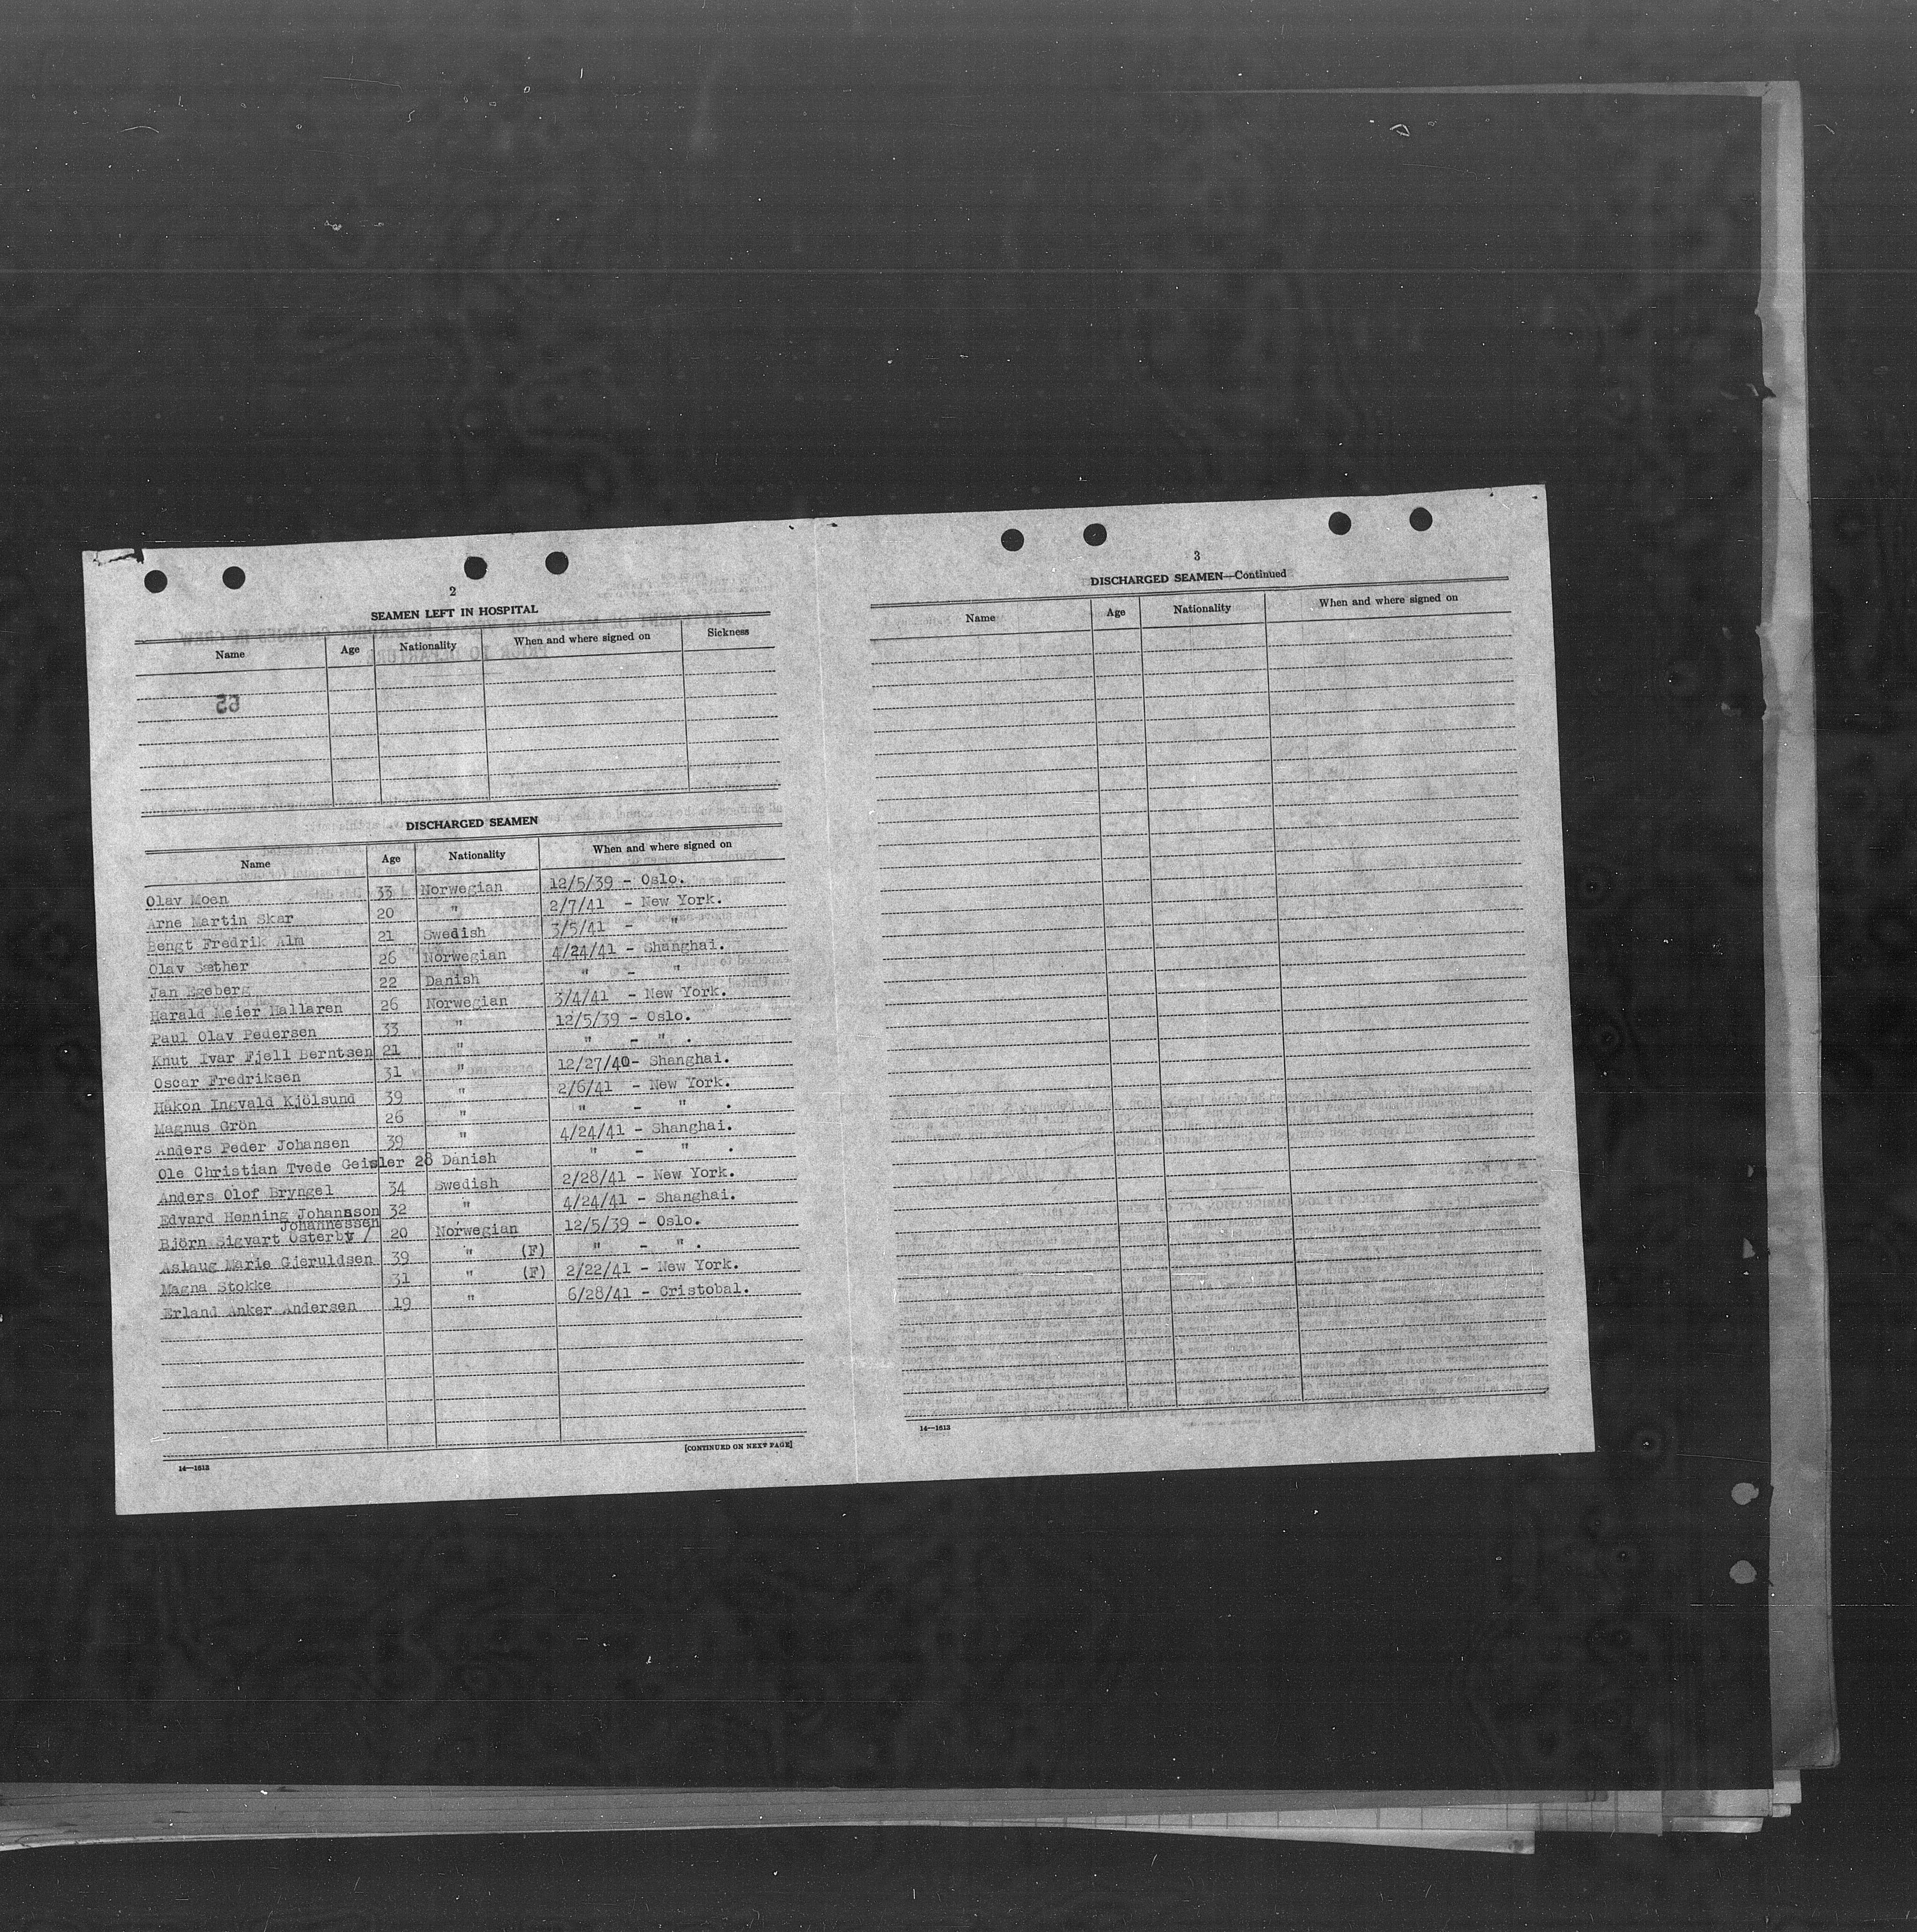 2
SEAMEN LEFT IN HOSPITAL
Name Age Nationality When and where signed on Sickness
DISCHARGED SEAMEN
Name Age Nationality When and where signed on
Olav Moen 33 Norwegian 12/5/39 - Oslo.
Arne Martin Skar 20 " 2/7/41 - New York.
Bengt Fredrik Alm 21 Swedish 3/5/41 - "
Olav Sæther 26 Norwegian 4/24/41 - Shanghai.
Jan Egeberg 22 Danish " - "
Harald Meier Hallaren 26 Norwegian 3/4/41 - New York.
Paul Olav Pedersen 33 " 12/5/39 - Oslo.
Knut Ivar Fjell Berntsen 21 " " - " .
Oscar Fredriksen 31 " 12/27/40- Shanghai.
Håkon Ingvald Kjölsund 39 " 2/6/41 - New York.
Magnus Grön 26 " " - " .
Anders Peder Johansen 39 " 4/24/41 - Shanghai.
Ole Christian Tvede Geisler 28 Danish " - " .
Anders Olof Bryngel 34 Swedish 2/28/41 - New York.
Edvard Henning Johansson 32 " 4/24/41 - Shanghai.
Johannessen
Björn Sigvart Österby / 20 Norwegian 12/5/39 - Oslo.
Aslaug Marie Gjeruldsen 39 " (F) " - " .
Magna Stokke 31 " (F) 2/22/41 - New York.
Erland Anker Andersen 19 " 6/28/41 - Cristobal.
[CONTINUED ON NEXT PAGE]
14—1613
3
DISCHARGED SEAMEN—Continued
Name Age Nationality When and where signed on
14—1613